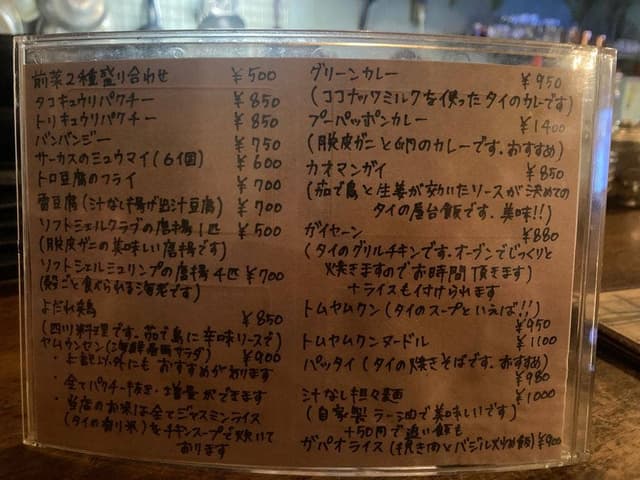 前菜2種盛り合わせ ¥500
タコキュウリパクチー ¥850
トリキュウリパクチー ¥850
バンバンジー ¥750
サーカスのミュウマイ(6個) ¥600
トロ豆腐のフライ ¥700
雷豆腐(汁なし揚げ出汁豆腐) ¥700
ソフトシェルクラブの唐揚1匹 ¥500
(脱皮ガニの美味しい唐揚です)
ソフトシェルシュリンプの唐揚4匹 ¥700
(殻ごと食べられる海老です)
よだれ鶏 ¥850
(四川料理です。茹で鳥に辛味ソースで)
ヤムウンセン(海鮮春雨サラダ) ¥900
・上記以外にもおすすめがあります
・全てパクチー抜き・増量ができます
・当店のお米は全てジャスミンライス
(タイの香り米)をチキンスープで炊いて
おります
グリーンカレー ¥950
(ココナッツミルクを使ったタイのカレーです)
プーパッポンカレー ¥1400
(脱皮ガニと卵のカレーです。おすすめ)
カオマンガイ ¥850
(茹で鳥と生姜が効いたソースが決めての
タイの屋台飯です。美味!!)
ガイヤーン ¥880
(タイのグリルチキンです。オーブンでじっくりと
焼きますのでお時間頂きます)
+ライスも付けられます
トムヤムクン(タイのスープといえば!!)
¥950
トムヤムクンヌードル ¥1100
パッタイ(タイの焼きそばです。おすすめ)
¥980
汁なし担々麺 ¥1000
(自家製ラー油で美味しいです)
+50円で追い飯も
ガパオライス(挽き肉とバジル炒め飯) ¥900